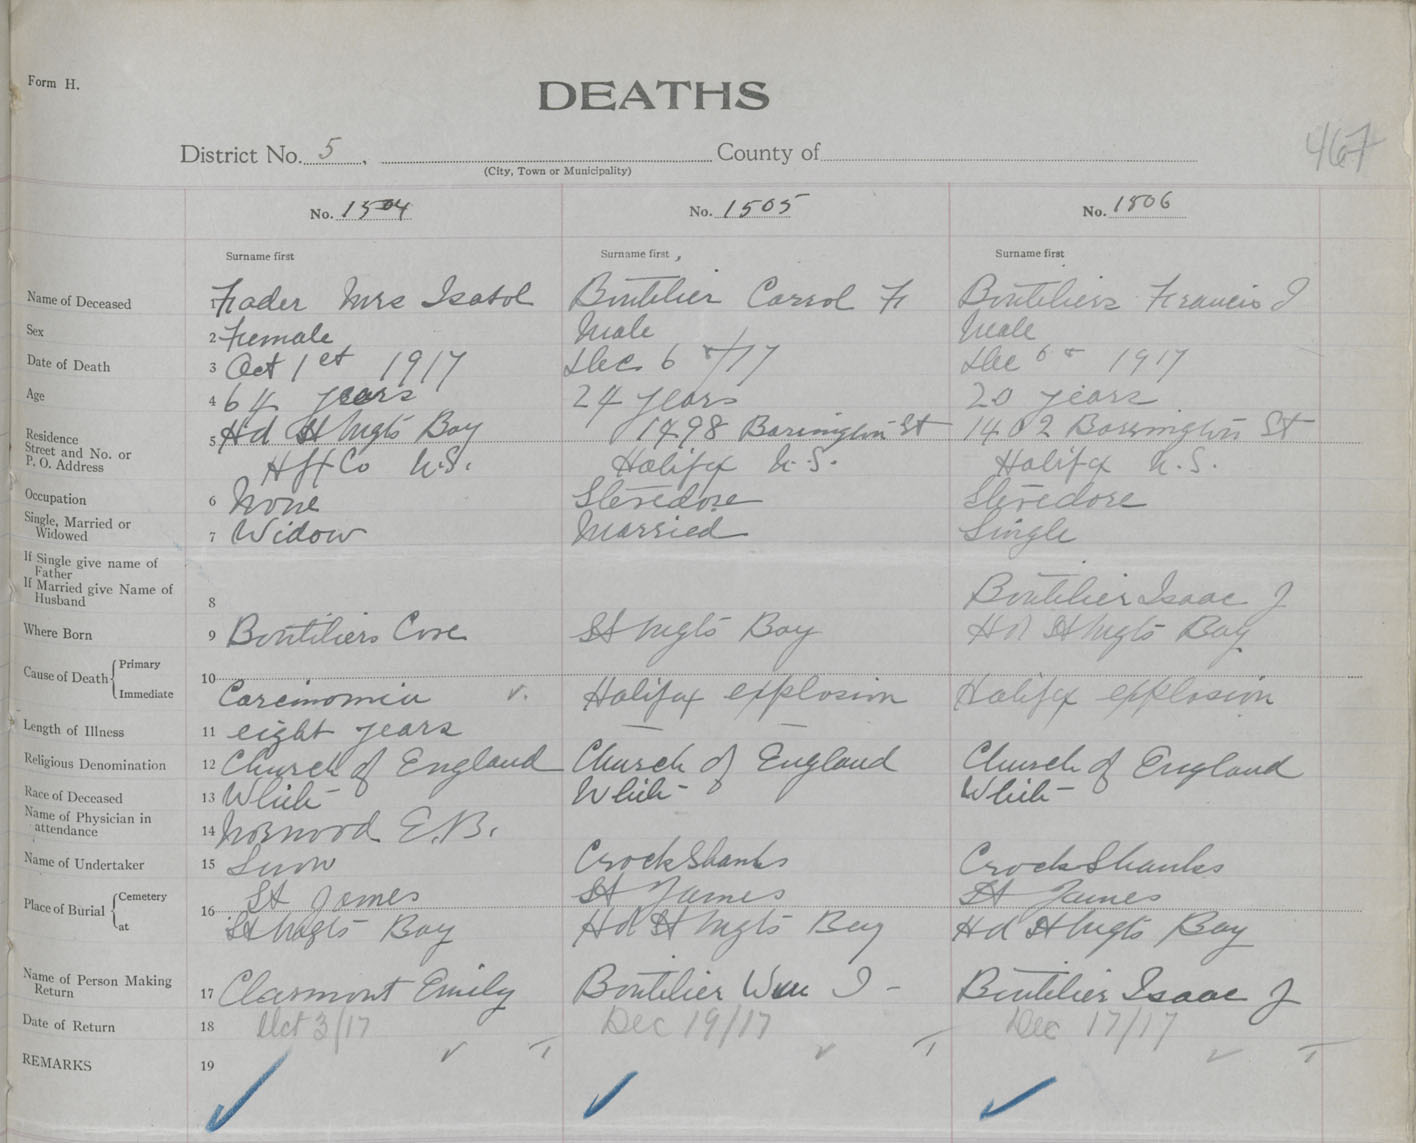 Form H.
DEATHS
467
District No. 5, County of
(City, Town or Municipality)
No. 1504 No. 1505 No. 1506
Surname first Surname first, Surname first
Name of Deceased 1 Frader Mrs Isabol Boutilier Carrol Fr Boutiliers Francis J
Sex 2 Female Male Male
Date of Death 3 Oct 1st 1917 Dec 6 /17 Dec 6 1917
Age 4 64 years 24 years 20 years
Residence Street and No. or P. O. Address 5 Hd St Mgts Bay 1498 Barrington St 1402 Barrington St
Hfx Co N.S. Halifax N.S. Halifax N.S.
Occupation 6 None Stevedore Stevedore
Single, Married or Widowed 7 Widow Married Single
If Single give name of Father
If Married give Name of Husband 8 Boutilier Isaac J
Where Born 9 Boutiliers Cove St Mgts Bay Hd St Mgts Bay
Cause of Death { Primary 10
Immediate Carcinomia v. Halifax explosion Halifax explosion
Length of Illness 11 eight years —
Religious Denomination 12 Church of England Church of England Church of England
Race of Deceased 13 White White White
Name of Physician in attendance 14 Norwood E.B.
Name of Undertaker 15 Snow CrockShanks CrockShanks
Place of Burial { Cemetery 16 St James St James St James
at St Mgts Bay Hd St Mgts Bay Hd St Mgts Bay
Name of Person Making Return 17 Clarmont Emily Boutilier Wm I - Boutilier Isaac J
Date of Return 18 Oct 3/17 Dec 19/17 Dec 17/17
REMARKS 19